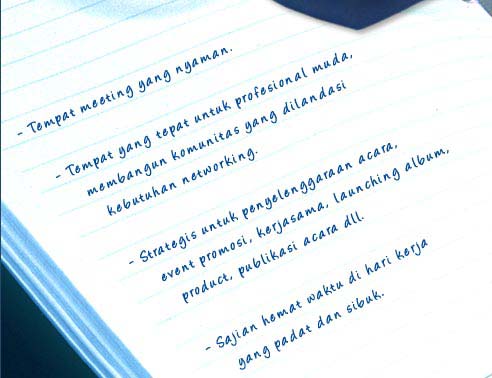 - Tempat meeting yang nyaman.
- Tempat yang tepat untuk profesional muda,
membangun komunitas yang dilandasi
kebutuhan networking.
- Strategis untuk penyelenggaraan acara,
event promosi, kerjasama, launching album,
product, publikasi acara dll.
- Sajian hemat waktu di hari kerja
yang padat dan sibuk.